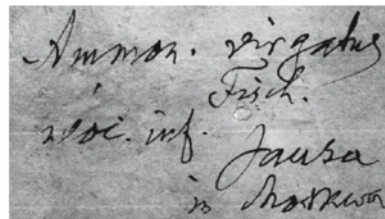 Ammon. virgatus
Fisch.
inf.
Jausa
in Moskwa